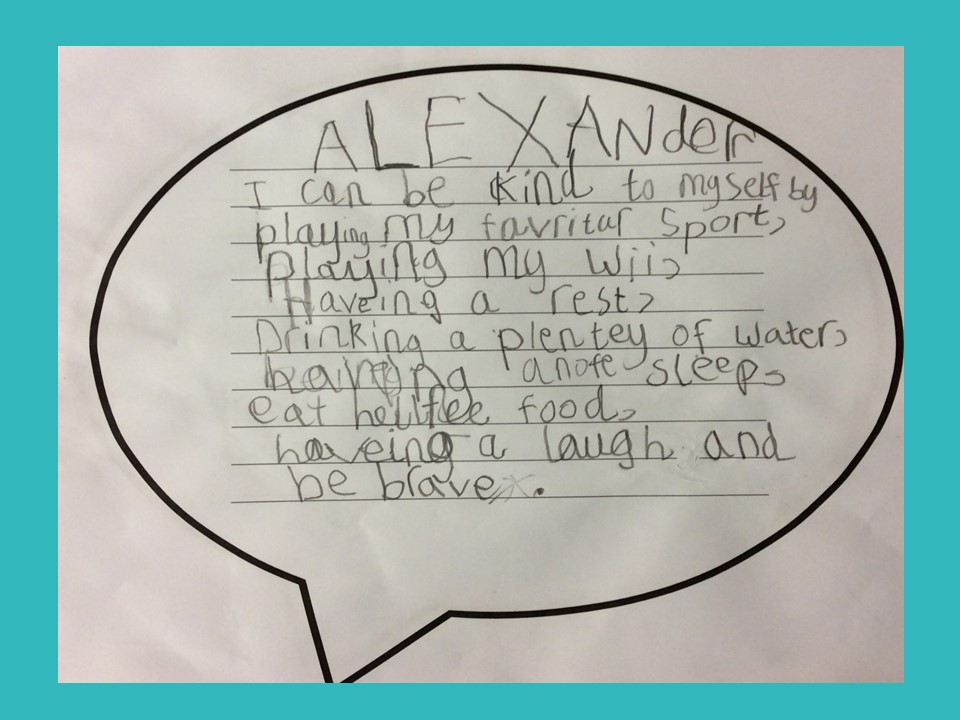 ALEXANder
I can be kind to myself by
playing my favritar Sport,
Playing my wii,
Haveing a rest,
Drinking a plentey of water,
anofe sleep,
eat food,
haveing a laugh and
be brave.